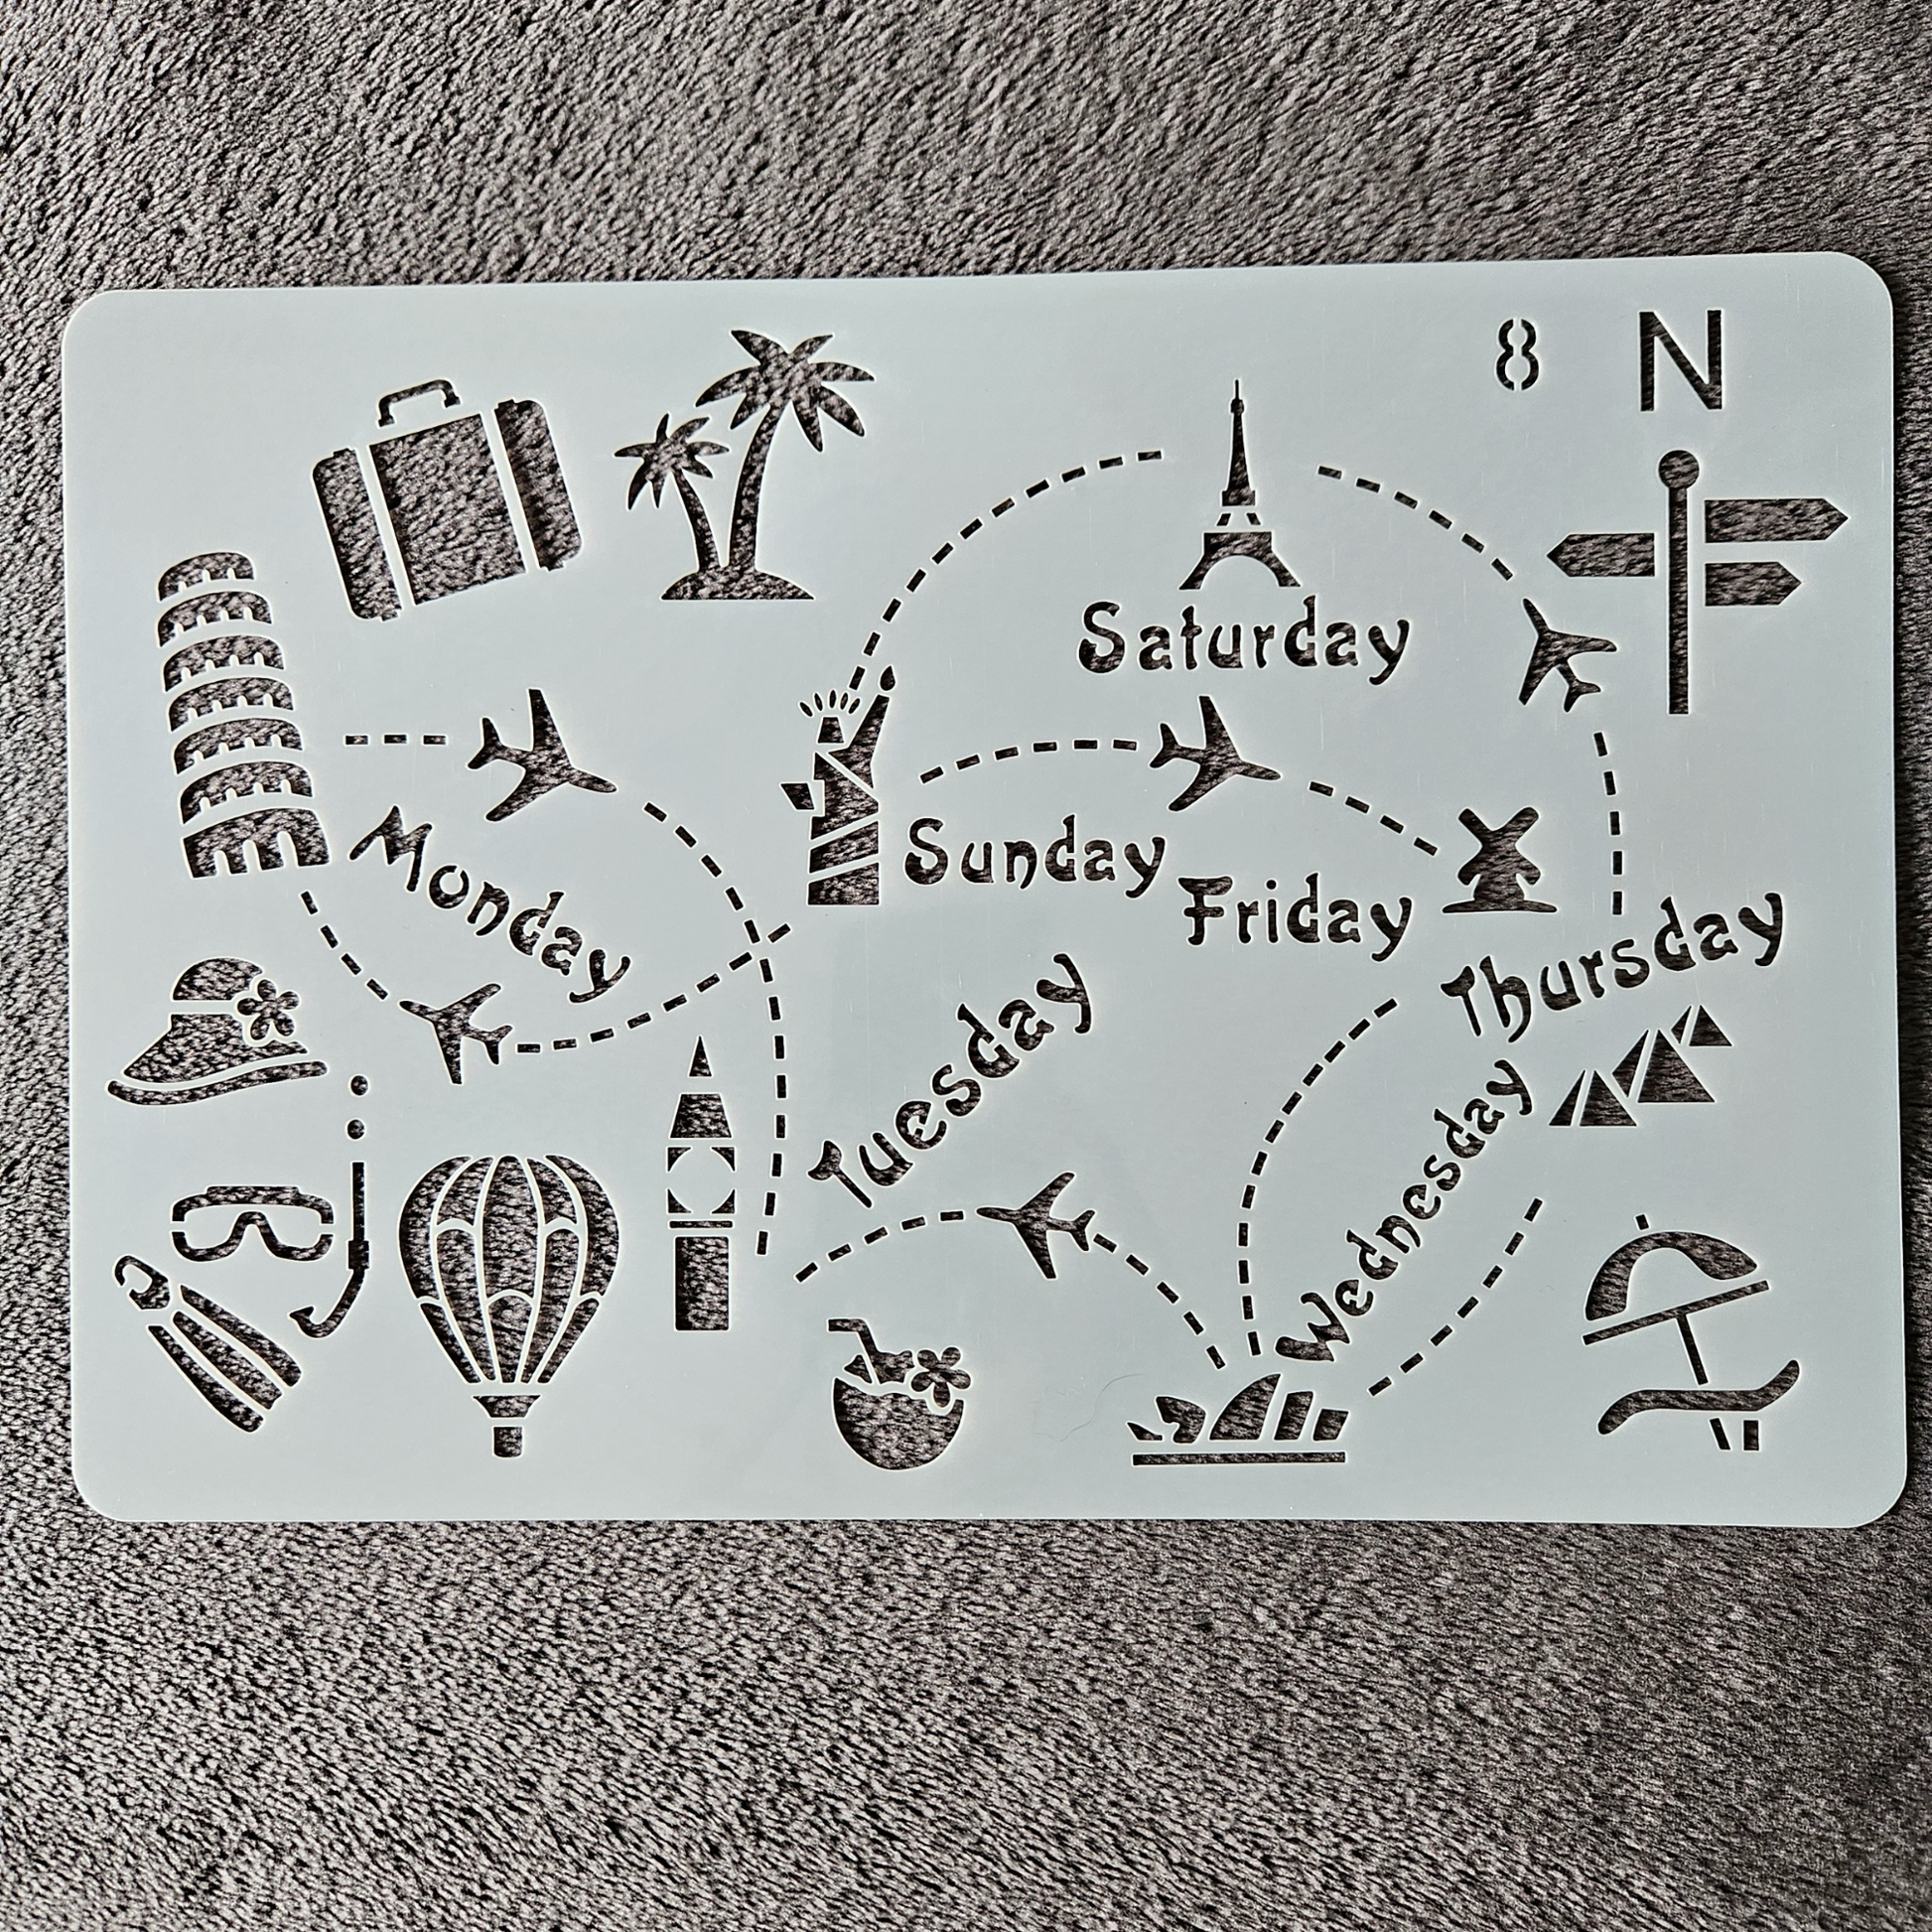 8 N
Saturday
Monday
Sunday
Friday
Thursday
Tuesday
Wednesday